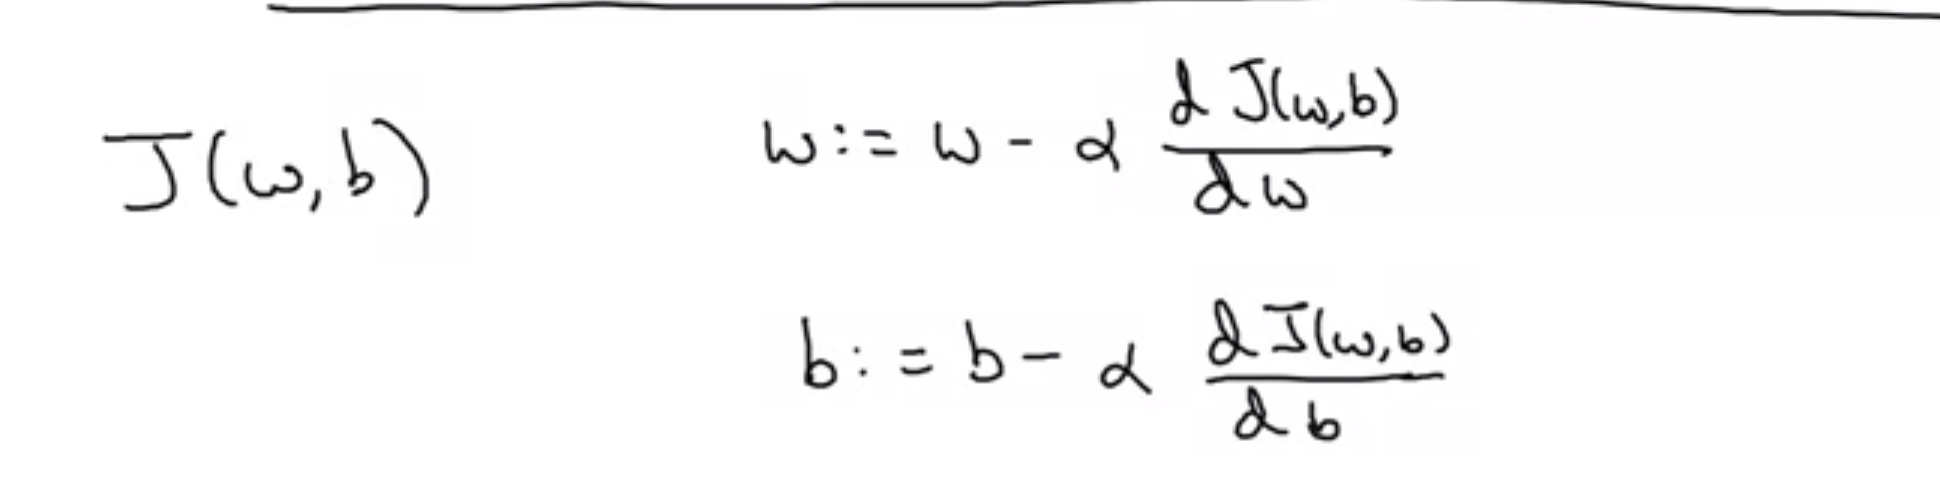 J(w,b)
w := w - α dJ(w,b)/dw
b := b - α dJ(w,b)/db